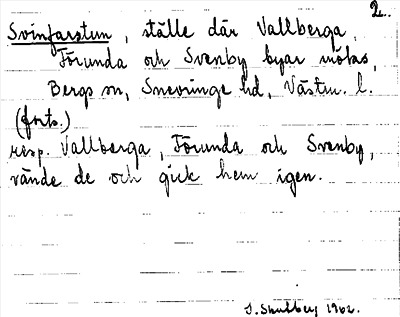 2.
Svinfarstum, ställe där Vallberga,
Förunda och Svenby byar mötas,
Bergs sn, Snevringe hd, Västm. l.
(forts.)
resp. Vallberga, Förunda och Svenby,
vände de och gick hem igen.
S. Skullbers 1902.